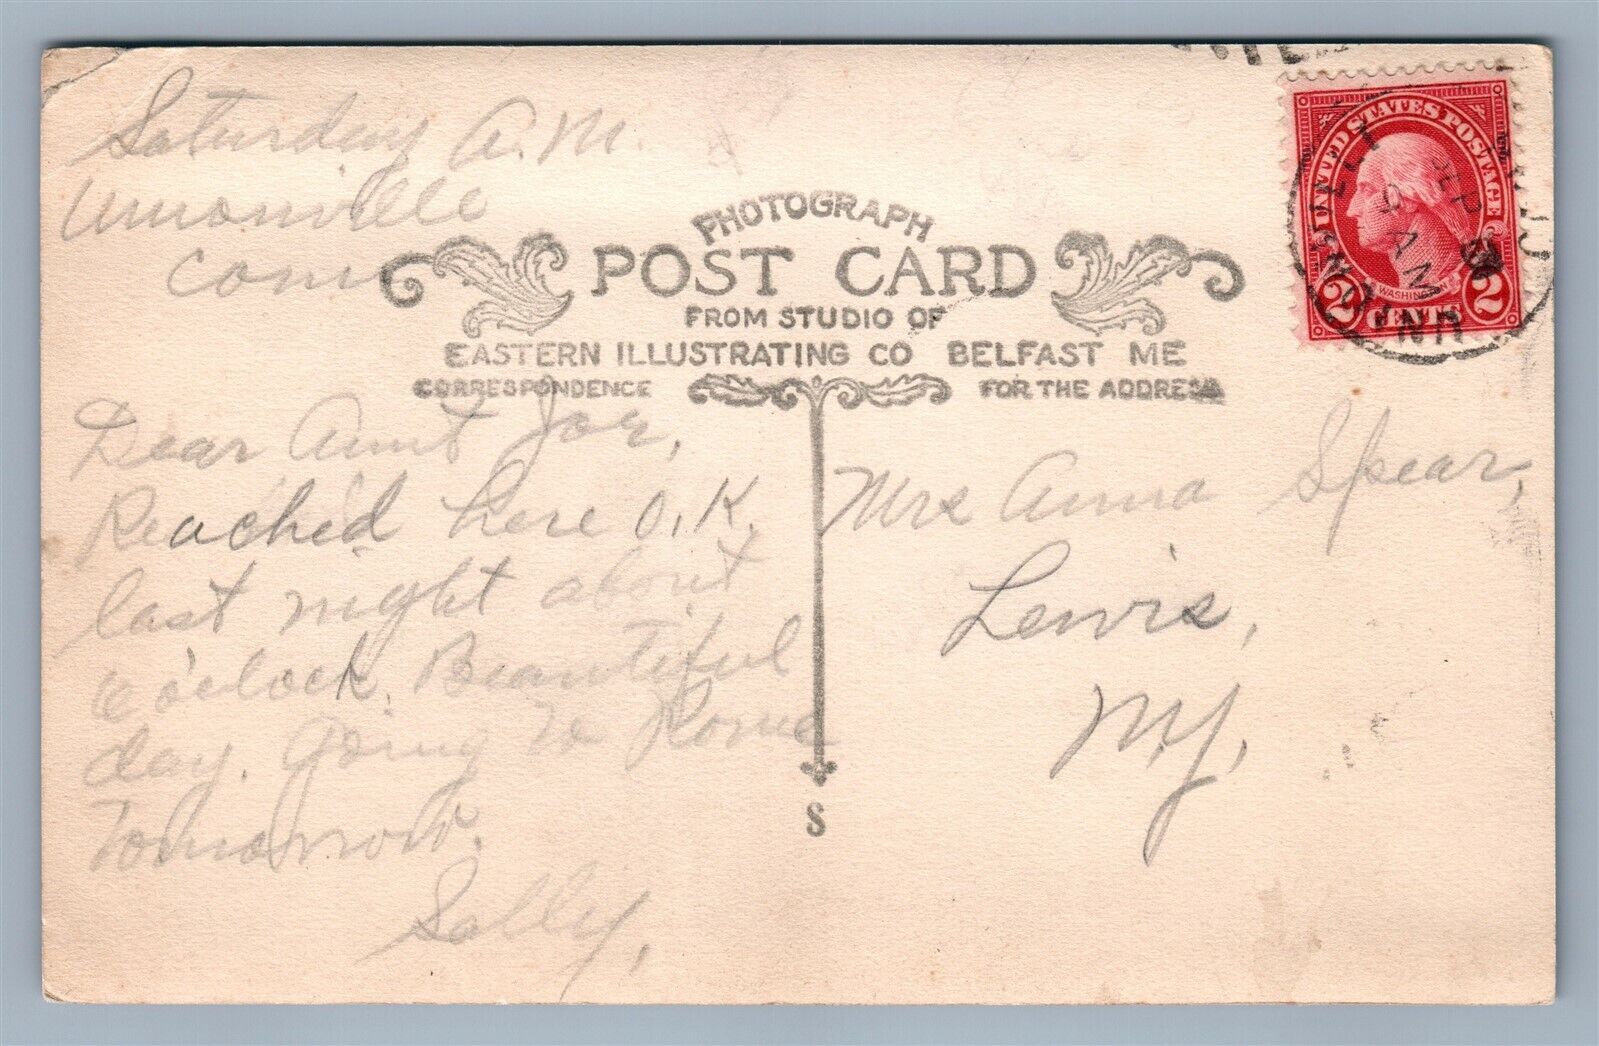 Saturday A.M.
Unionville
Conn
PHOTOGRAPH
POST CARD
FROM STUDIO OF
EASTERN ILLUSTRATING CO BELFAST ME
CORRESPONDENCE
FOR THE ADDRESS
Dear Aunt Joe,
Reached here O.K.
last night about
6 o'clock. Beautiful
day. Going to Rome
Tomorrow.
Sally,
S
UNITED STATES POSTAGE
WASHINGTON
2 CENTS 2
SEP
9 AM
Mrs Anna Spear,
Lewis,
N.Y.